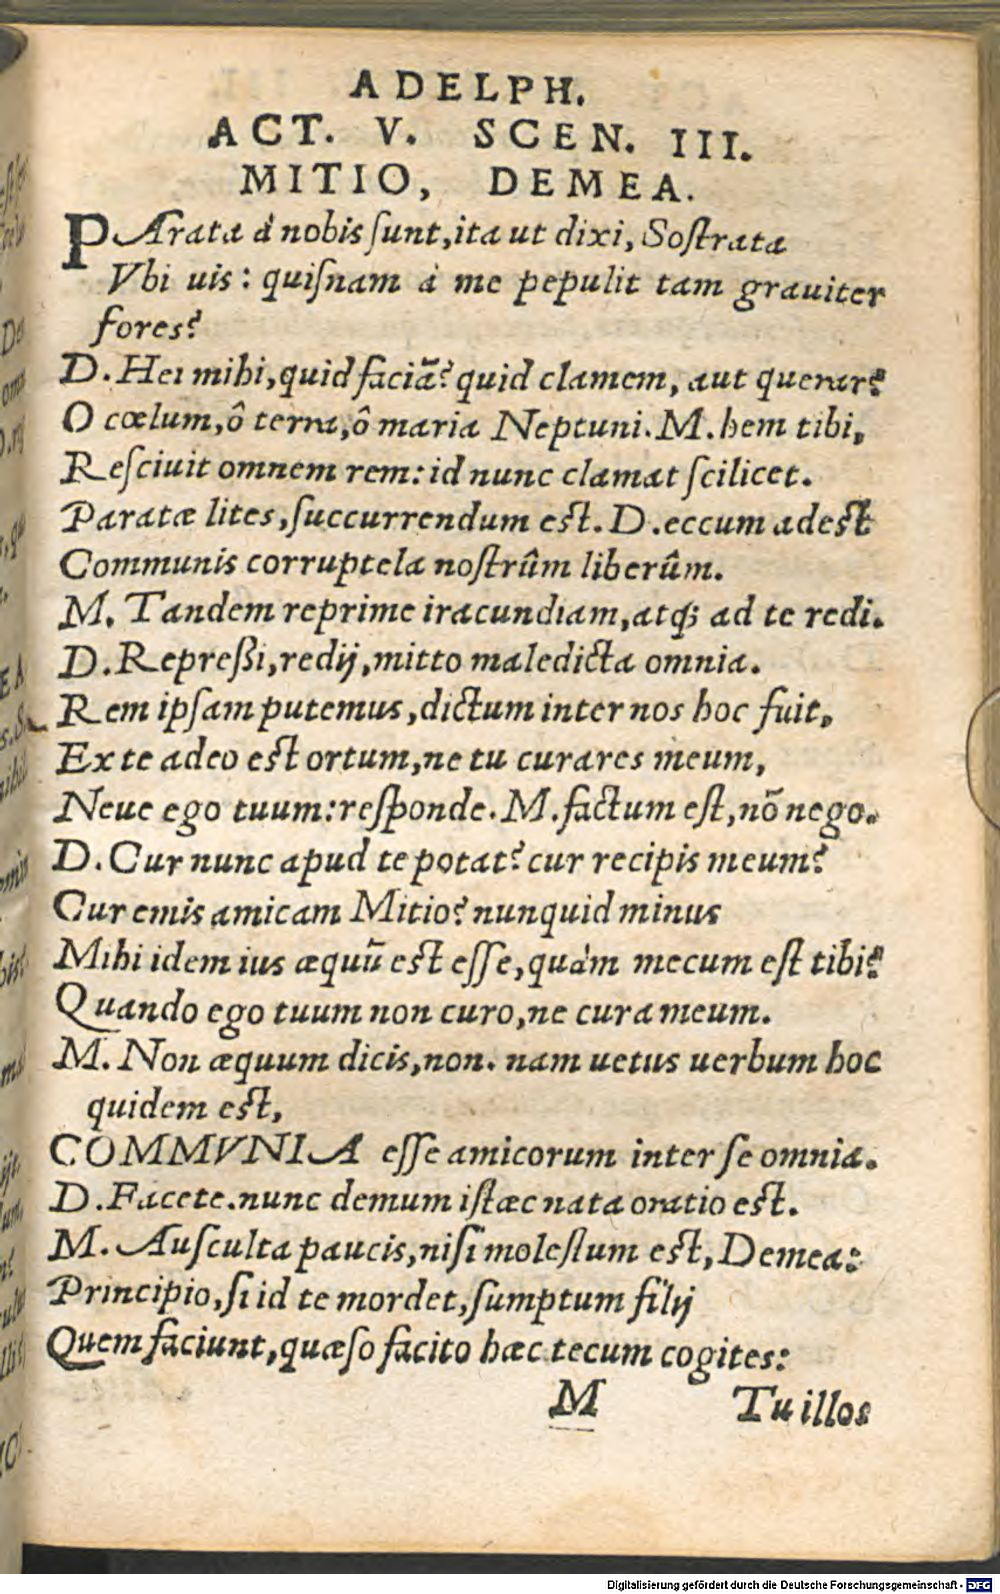 ADELPH.
ACT. V. SCEN. III.
MITIO, DEMEA.
PArata à nobis ſunt, ita ut dixi, Soſtrata
Vbi uis: quiſnam à me pepulit tam grauiter
fores?
D. Hei mihi, quid faciã? quid clamem, aut querar?
O cœlum, ô terra, ô maria Neptuni. M. hem tibi,
Reſciuit omnem rem: id nunc clamat ſcilicet.
Paratæ lites, ſuccurrendum eſt. D. eccum adeſt
Communis corruptela noſtrûm liberûm.
M. Tandem reprime iracundiam, atq; ad te redi.
D. Repreßi, redij, mitto maledicta omnia.
Rem ipſam putemus, dictum inter nos hoc fuit,
Ex te adeo eſt ortum, ne tu curares meum,
Neue ego tuum: reſponde. M. factum eſt, nõ nego.
D. Cur nunc apud te potat? cur recipis meum?
Cur emis amicam Mitio? nunquid minus
Mihi idem ius æquũ eſt eſſe, quàm mecum eſt tibi?
Quando ego tuum non curo, ne cura meum.
M. Non æquum dicis, non. nam uetus uerbum hoc
quidem eſt,
COMMVNIA eſſe amicorum inter ſe omnia.
D. Facete. nunc demum iſtæc nata oratio eſt.
M. Auſculta paucis, niſi moleſtum eſt, Demea:
Principio, ſi id te mordet, ſumptum filij
Quem faciunt, quæſo facito hæc tecum cogites:
M Tu illos
Digitalisierung gefördert durch die Deutsche Forschungsgemeinschaft - DFG